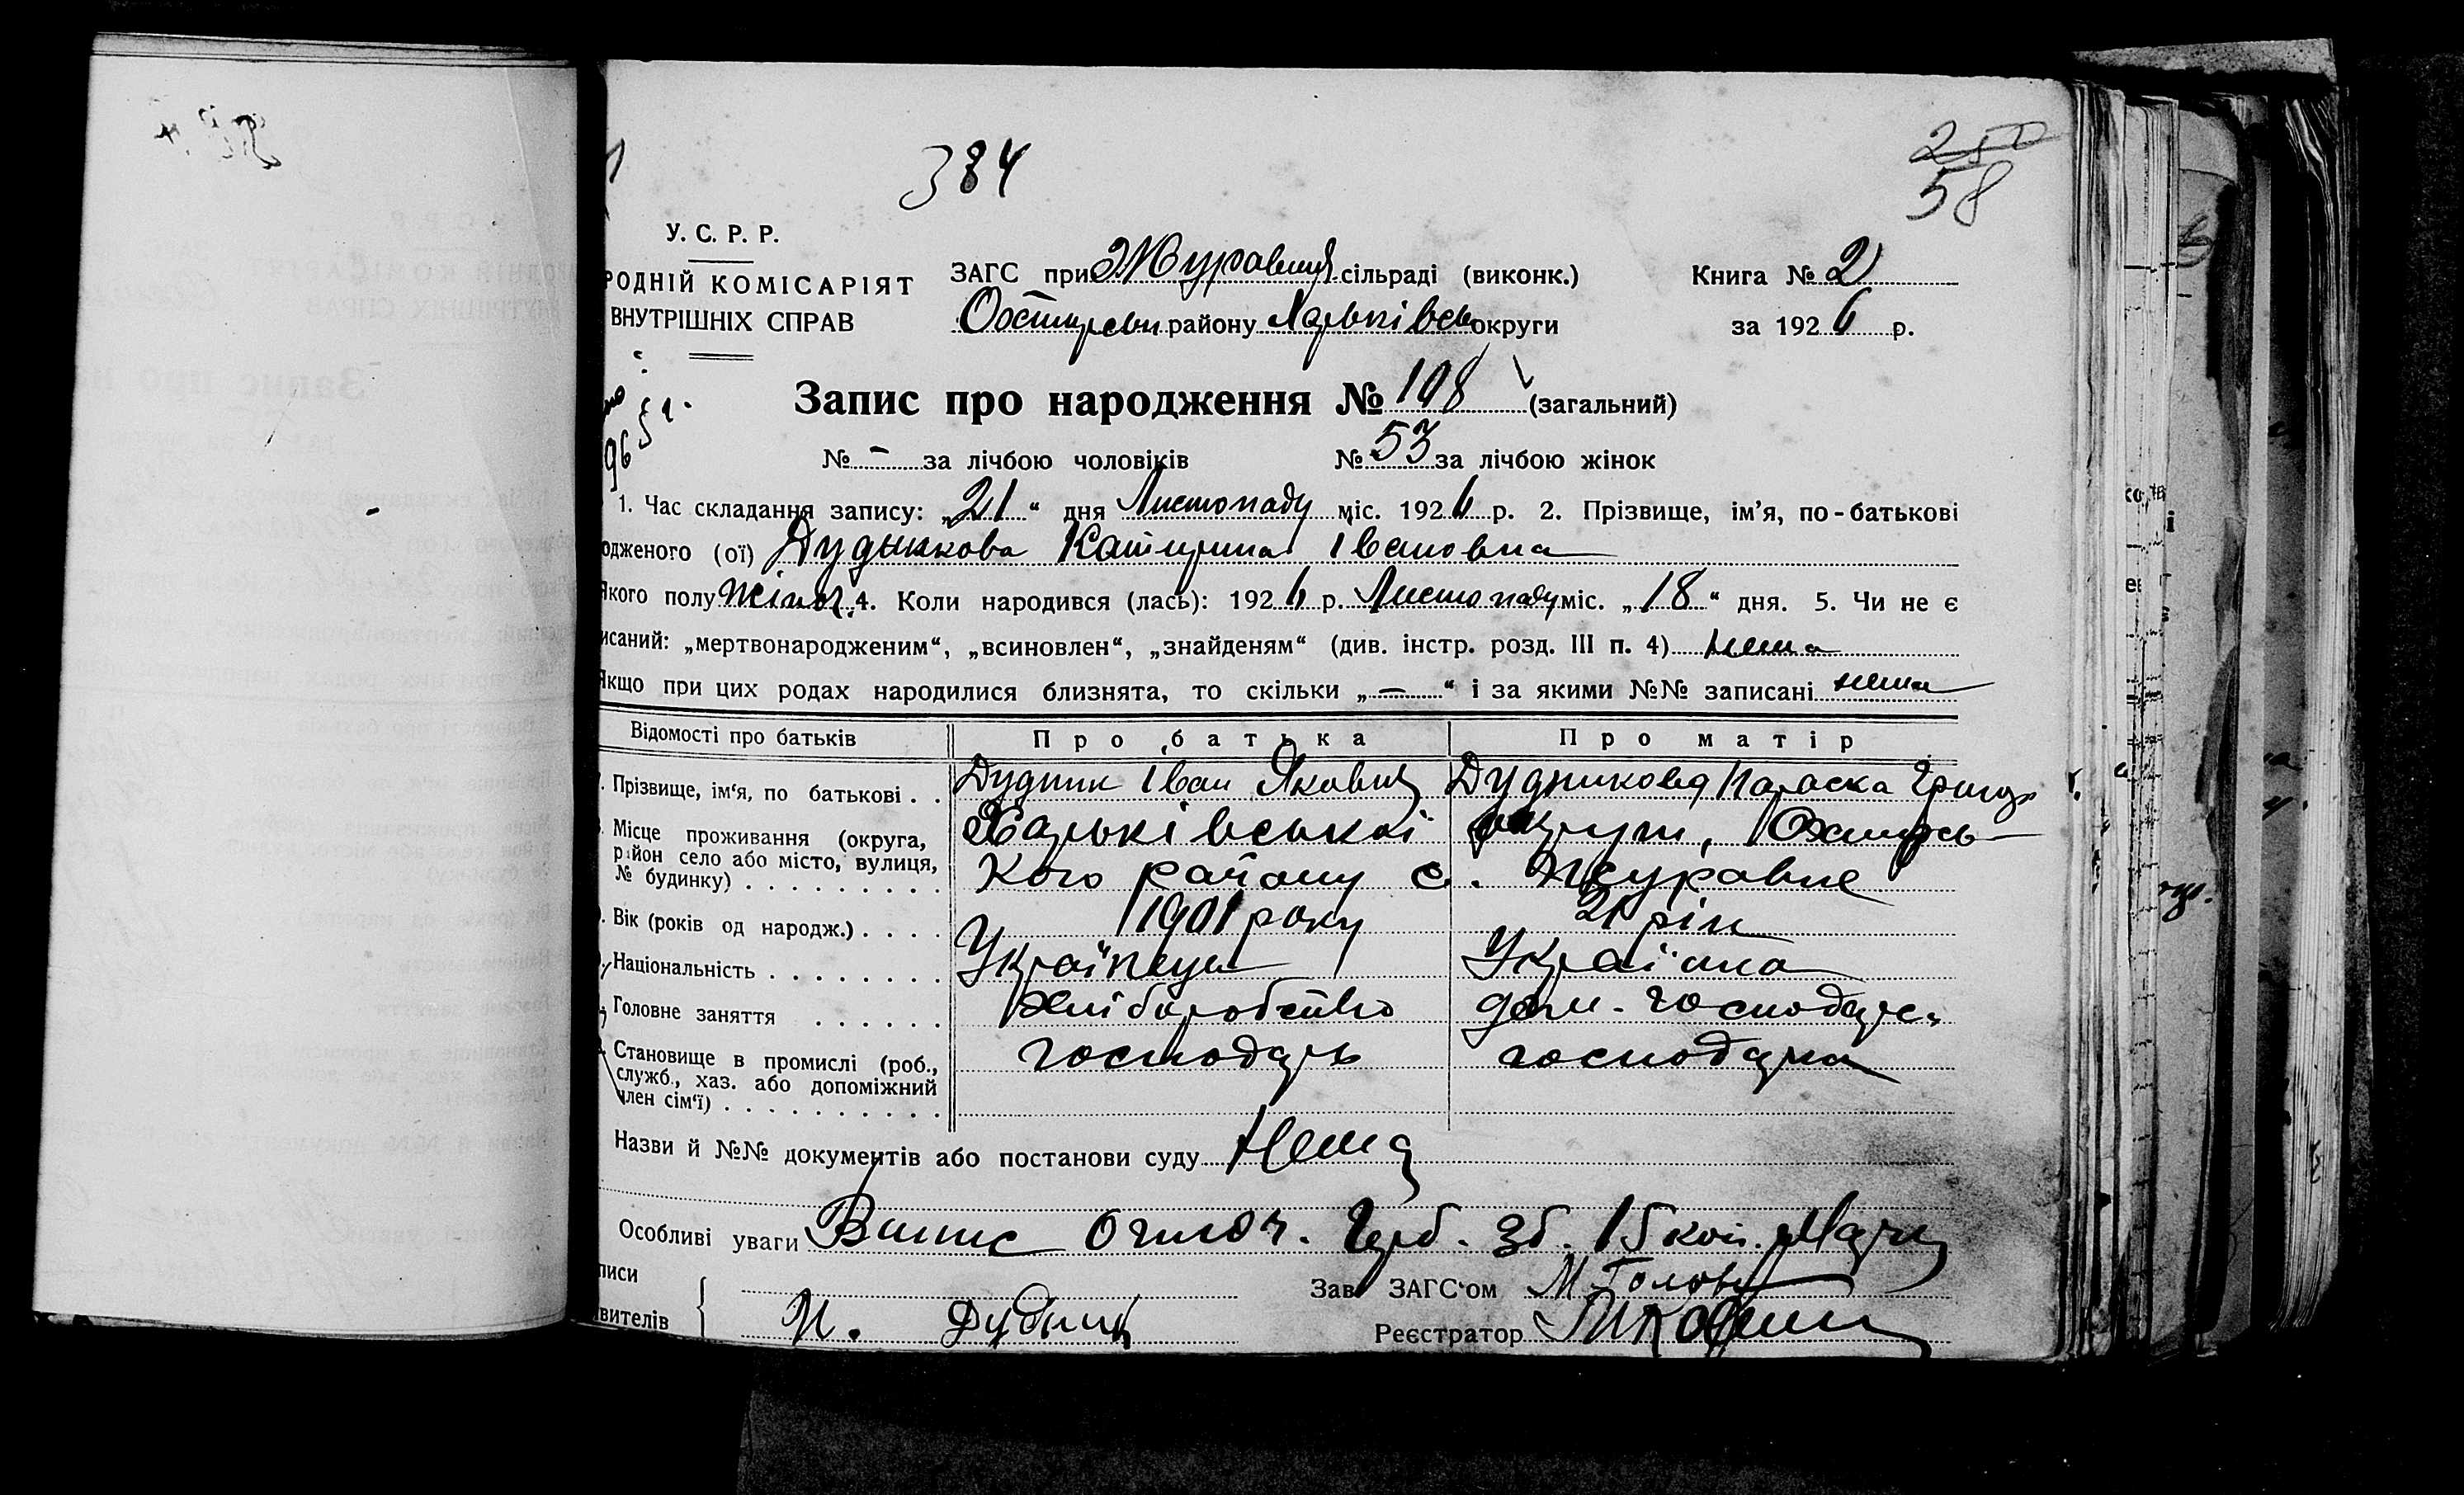 384
58
У. С. Р. Р.
РОДНІЙ КОМІСАРІЯТ
ВНУТРІШНІХ СПРАВ
ЗАГС при сільраді (виконк.) Книга № 2
району округи за 1926 р.
Запис про народження № 108 (загальний)
№ - за лічбою чоловіків № 53 за лічбою жінок
1. Час складання запису: „21“ дня Листопаду міс. 1926 р. 2. Прізвище, ім'я, по-батькові
одженого (ої) Дудникова Катерина Івановна
Якого полу жіноч. 4. Коли народився (лась): 1926 р. Листопаду міс. „18“ дня. 5. Чи не є
исаний: „мертвонародженим“, „всиновлен“, „знайденям“ (див. інстр. розд. III п. 4) нема
Якщо при цих родах народилися близнята, то скільки „—“ і за якими №№ записані нема
Відомості про батьків Про батька Про матір
Прізвище, ім'я, по батькові . . Дудник Іван Якович Дудникова Параска
Місце проживання (округа, район село або місто, вулиця, № будинку) Харьківської округи,
кого району с. Журавне
Вік (років од народж.) . . . . 1901 року 21 рік
Національність . . . . . . . . Українець Українка
Головне заняття . . . . . . хліборобство дом. господар.
Становище в промислі (роб., служб., хаз. або допоміжний член сім'ї) . . . . . . . . . . господарь господарка
Назви й №№ документів або постанови суду Нема
Особливі уваги Випис Герб. зб. 15 коп.
писи
вителів И. Дудник
Зав ЗАГС'ом М.
Реєстратор